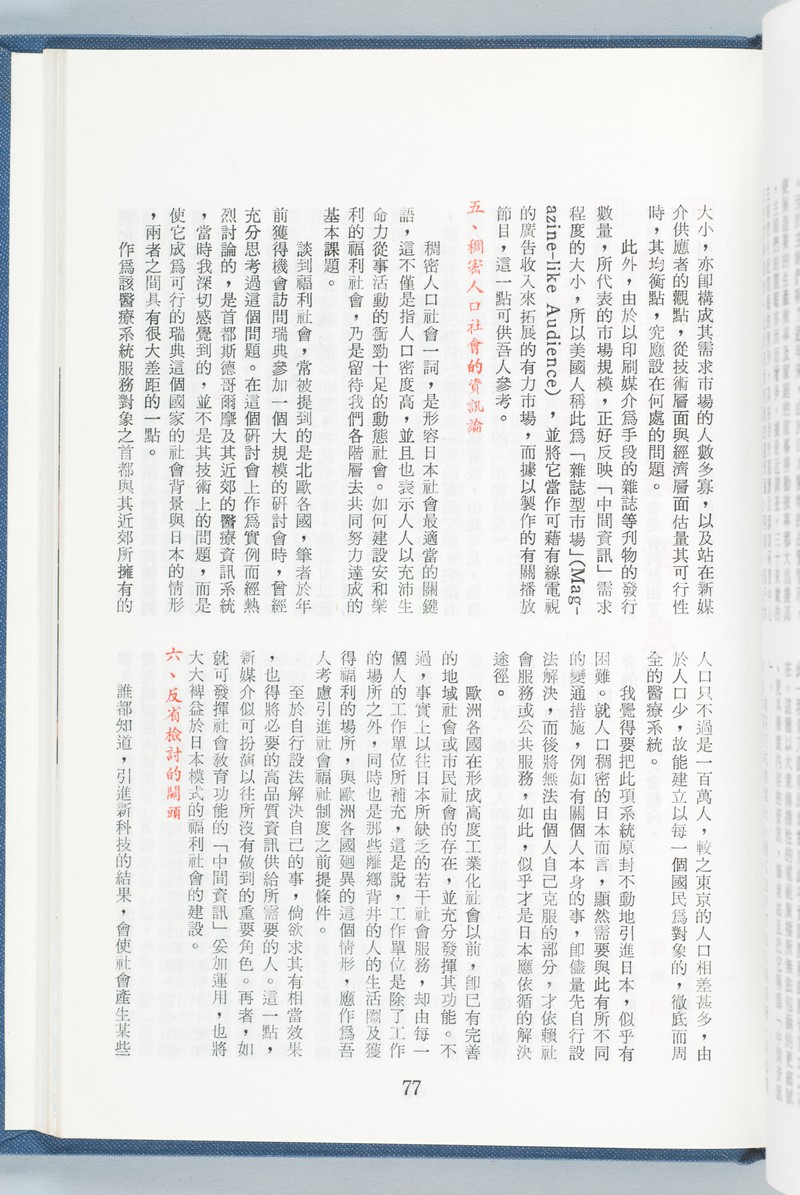 大小，亦卽構成其需求市場的人數多寡，以及站在新媒
介供應者的觀點，從技術層面與經濟層面估量其可行性
時，其均衡點，究應設在何處的問題。
此外，由於以印刷媒介爲手段的雜誌等刋物的發行
數量，所代表的市場規模，正好反映「中間資訊」需求
程度的大小，所以美國人稱此爲「雜誌型市場」(Mag-
azine-like Audience)，並將它當作可藉有線電視
的廣告收入來拓展的有力市場，而據以製作的有關播放
節目，這一點可供吾人參考。
五、稠密人口社會的資訊論
稠密人口社會一詞，是形容日本社會最適當的關鍵
語，這不僅是指人口密度高，並且也表示人人以充沛生
命力從事活動的衝勁十足的動態社會。如何建設安和樂
利的福利社會，乃是留待我們各階層去共同努力達成的
基本課題。
談到福利社會，常被提到的是北歐各國，筆者於年
前獲得機會訪問瑞典參加一個大規模的硏討會時，曾經
充分思考過這個問題。在這個硏討會上作爲實例而經熱
烈討論的，是首都斯德哥爾摩及其近郊的醫療資訊系統
，當時我深切感覺到的，並不是其技術上的問題，而是
使它成爲可行的瑞典這個國家的社會背景與日本的情形
，兩者之間具有很大差距的一點。
作爲該醫療系統服務對象之首都與其近郊所擁有的
人口只不過是一百萬人，較之東京的人口相差甚多，由
於人口少，故能建立以每一個國民爲對象的，徹底而周
全的醫療系統。
我覺得要把此項系統原封不動地引進日本，似乎有
困難。就人口稠密的日本而言，顯然需要與此有所不同
的變通措施，例如有關個人本身的事，卽儘量先自行設
法解決，而後將無法由個人自己克服的部分，才依賴社
會服務或公共服務，如此，似乎才是日本應依循的解決
途徑。
歐洲各國在形成高度工業化社會以前，卽已有完善
的地域社會或市民社會的存在，並充分發揮其功能。不
過，事實上以往日本所缺乏的若干社會服務，却由每一
個人的工作單位所補充，這是說，工作單位是除了工作
的場所之外，同時也是那些離鄕背井的人的生活圈及獲
得福利的場所，與歐洲各國廻異的這個情形，應作爲吾
人考慮引進社會福祉制度之前提條件。
至於自行設法解決自己的事，倘欲求其有相當效果
，也得將必要的高品質資訊供給所需要的人。這一點，
新媒介似可扮演以往所沒有做到的重要角色。再者，如
就可發揮社會敎育功能的「中間資訊」妥加運用，也將
大大裨益於日本模式的福利社會的建設。
六、反省檢討的關頭
誰都知道，引進新科技的結果，會使社會產生某些
77